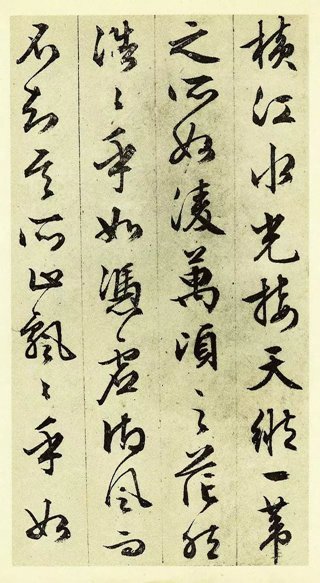 橫江水光接天縱一葦
之所如凌萬頃之茫然
浩〻乎如馮虛御風而
不知其所止飄〻乎如